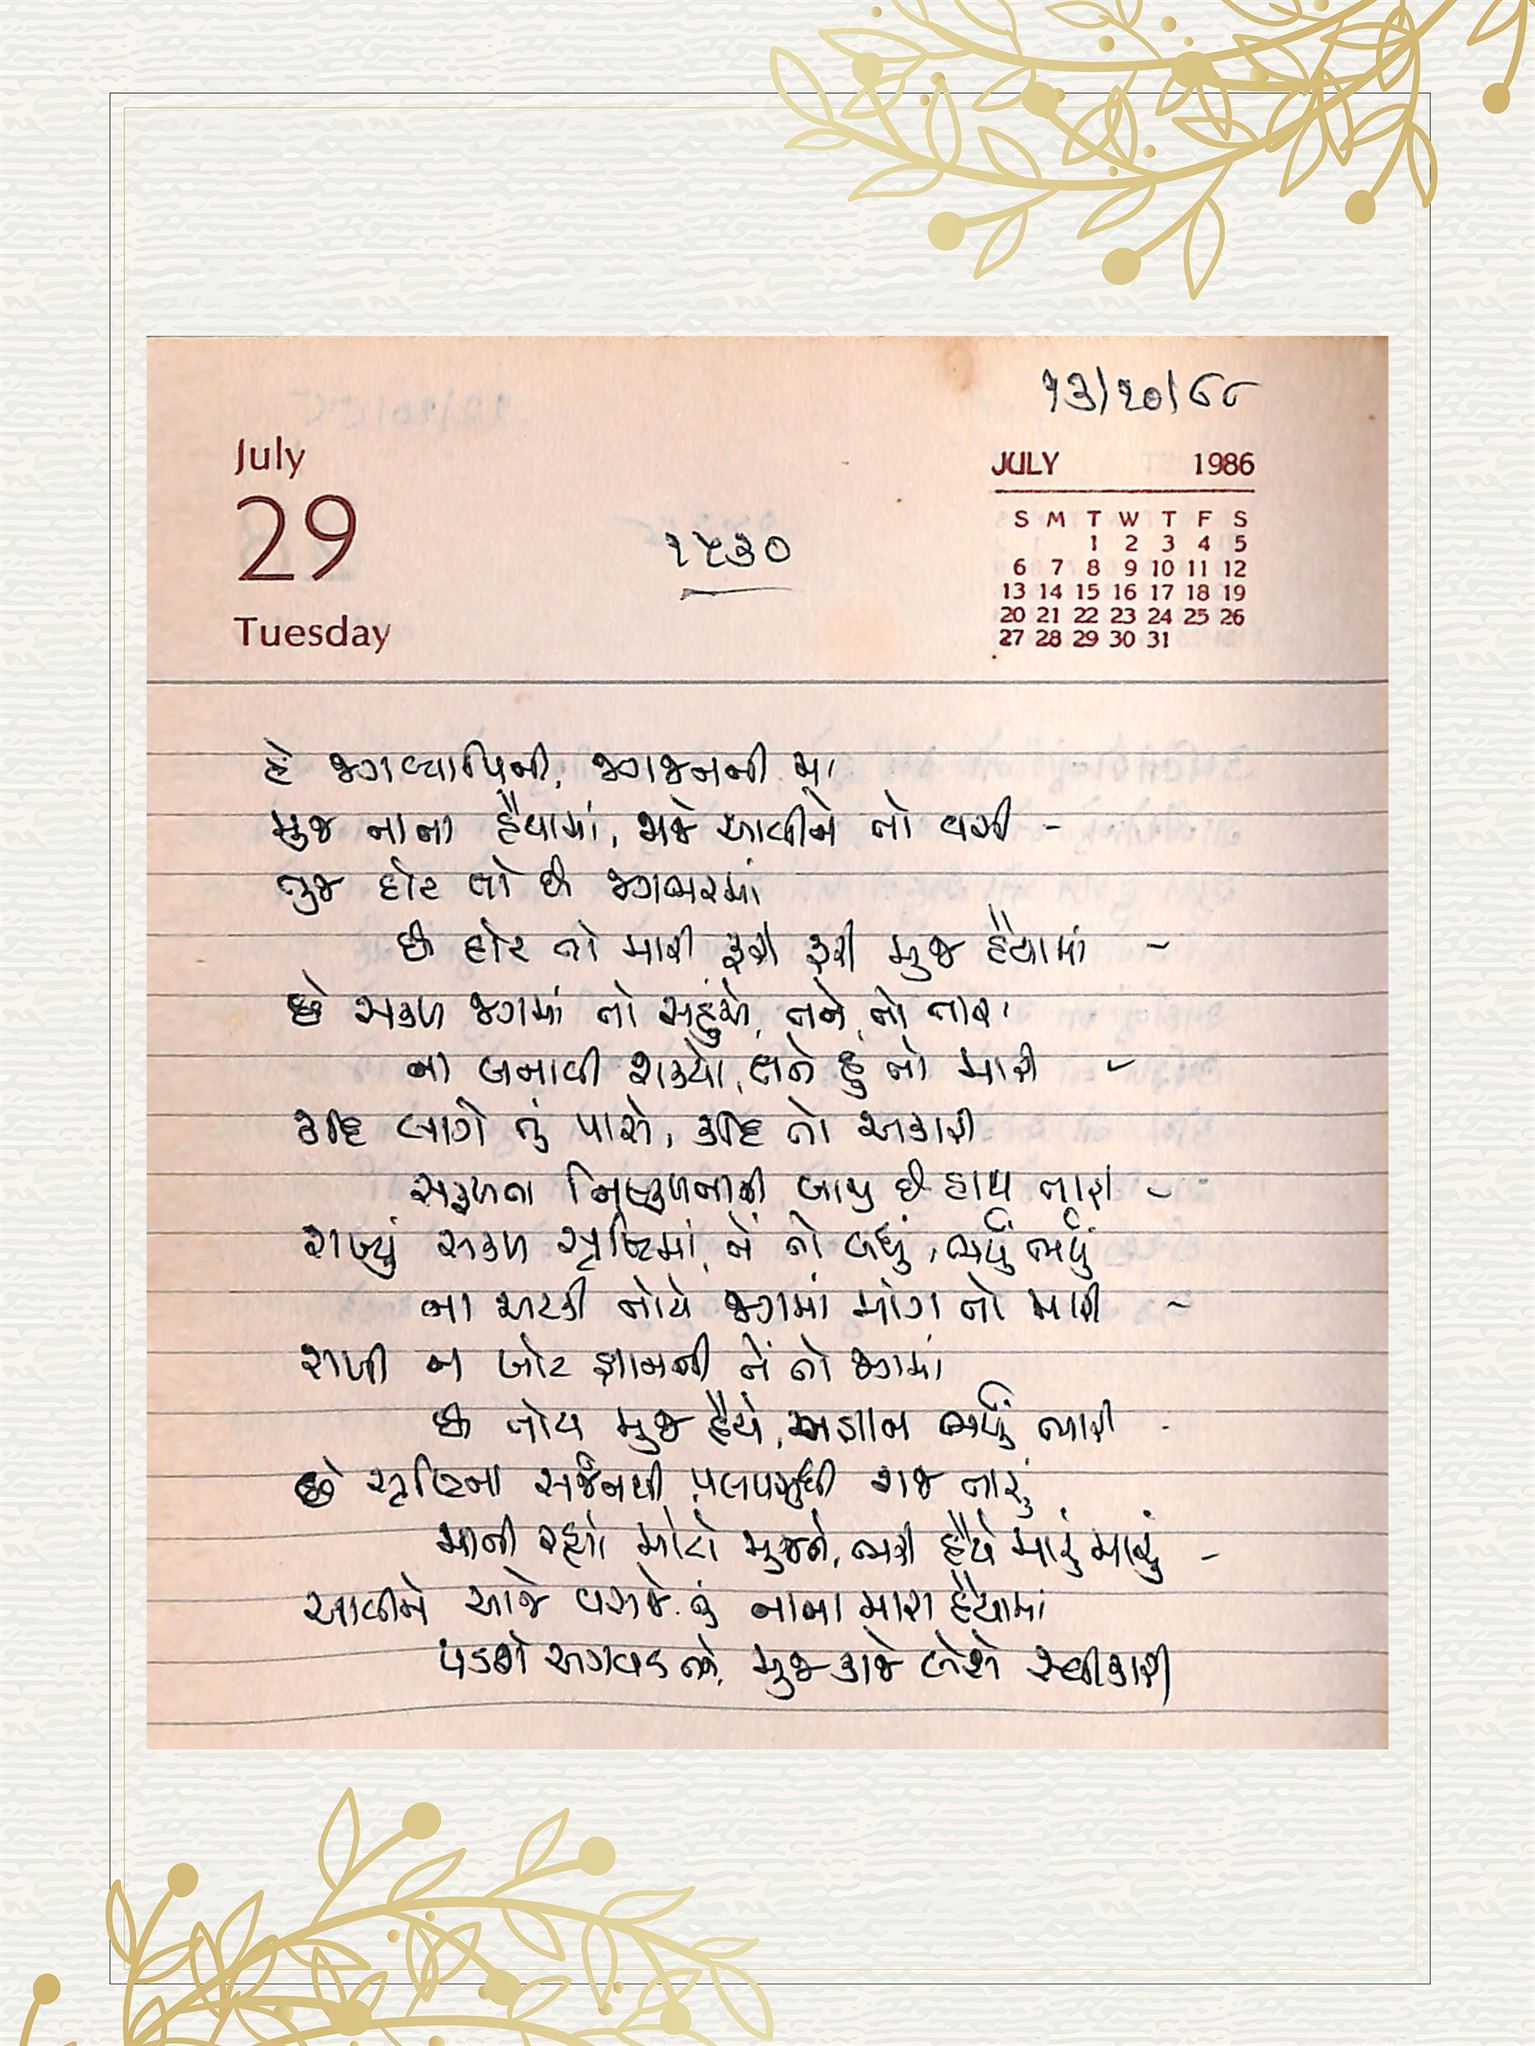 ૧૩/૧૦/૮૮
July
29
Tuesday
૧૫૩૦
JULY 1986
S M T W T F S
1 2 3 4 5
6 7 8 9 10 11 12
13 14 15 16 17 18 19
20 21 22 23 24 25 26
27 28 29 30 31
હે જગવ્યાપિની, જગજનની મા
મુજ નાના હૈયામાં, આજે આવીને તો વસી -
તુજ હોટ તો છે જગભરમાં
છે હોટ તો મારી ફરી ફરી મુજ હૈયામાં -
છે સકળ જગમાં તો સહુએ, તને તો તારા
ના બનાવી શક્યો, તને હું તો મારી -
કદિ લાગે તું પાસે, કદિ તો અકારી
સફળતા નિષ્ફળતાની લાધુ છે હાથ તારા -
રાખ્યું સકળ સૃષ્ટિમાં, તેં તો બધું, ભર્યું ભર્યું
ના અટકી તોયે જગમાં માંગ તો મારી -
રાખી ન ખોટ જ્ઞાનની તેં તો જગમાં
છે તોય મુજ હૈયે, અજ્ઞાન ભર્યું ભારી -
છે સૃષ્ટિના સર્જનથી પ્રલયસુધી રાજ તારું
માની રહ્યો મોટો મુજને, ભરી હૈયે મારું મારું -
આવીને આજે વસજે તું નાના મારા હૈયામાં
પડશે અગવડ જો, મુજ કાજે લેશે સ્વીકારી